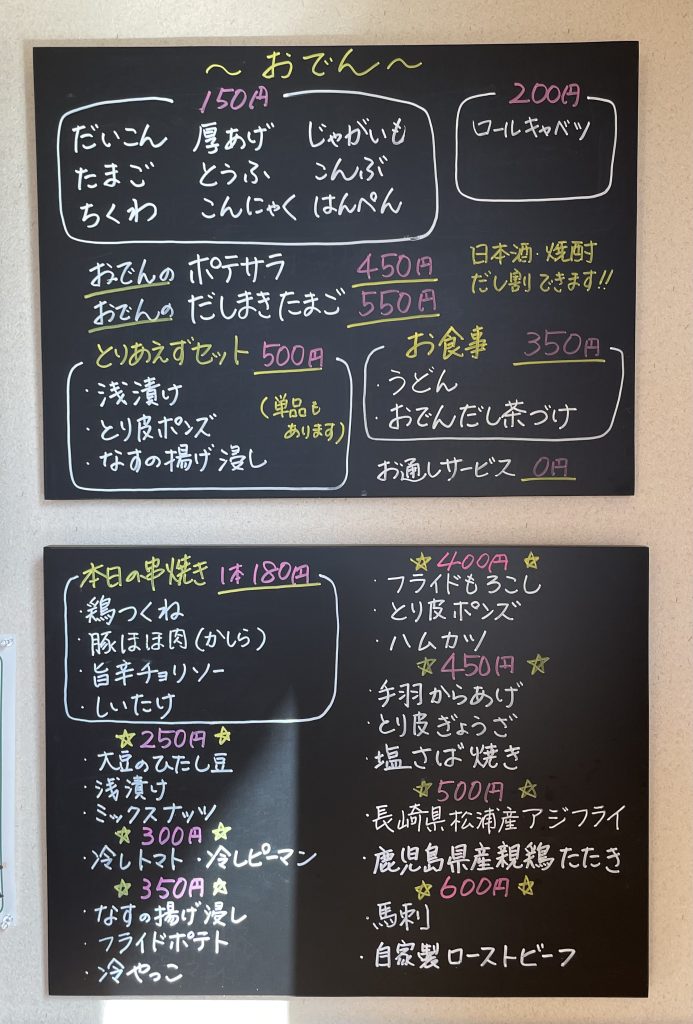 ～おでん～
150円
だいこん 厚あげ じゃがいも
たまご とうふ こんぶ
ちくわ こんにゃく はんぺん
200円
ロールキャベツ
おでんの ポテサラ 450円
おでんの だしまきたまご 550円
日本酒・焼酎
だし割できます!!
とりあえずセット 500円
・浅漬け
・とり皮ポンズ
・なすの揚げ浸し
(単品も
あります)
お食事 350円
・うどん
・おでんだし茶づけ
お通しサービス 0円
本日の串焼き 1本180円
・鶏つくね
・豚ほほ肉(かしら)
・旨辛チョリソー
・しいたけ
☆250円☆
・大豆のひたし豆
・浅漬け
・ミックスナッツ
☆300円☆
・冷しトマト ・冷しピーマン
☆350円☆
・なすの揚げ浸し
・フライドポテト
・冷やっこ
☆400円☆
・フライドもろこし
・とり皮ポンズ
・ハムカツ
☆450円☆
・手羽からあげ
・とり皮ぎょうざ
・塩さば焼き
☆500円☆
・長崎県松浦産アジフライ
・鹿児島県産親鶏たたき
☆600円☆
・馬刺
・自家製ローストビーフ